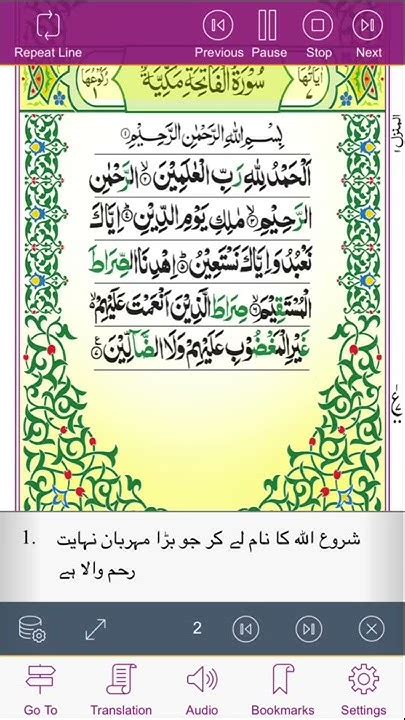 Repeat Line
Previous
Pause
Stop
Next
سُوْرَةُ الْفَاتِحَةِ مَكِّيَّةٌ
اٰيَاتُهَا ٧
رُكُوْعُهَا ١
المنزل ١
بِسْمِ اللّٰهِ الرَّحْمٰنِ الرَّحِيْمِ
اَلْحَمْدُ لِلّٰهِ رَبِّ الْعٰلَمِيْنَ الرَّحْمٰنِ
الرَّحِيْمِ مٰلِكِ يَوْمِ الدِّيْنِ اِيَّاكَ
نَعْبُدُ وَاِيَّاكَ نَسْتَعِيْنُ اِهْدِنَا الصِّرَاطَ
الْمُسْتَقِيْمَ صِرَاطَ الَّذِيْنَ اَنْعَمْتَ عَلَيْهِمْ
غَيْرِ الْمَغْضُوْبِ عَلَيْهِمْ وَلَا الضَّآلِّيْنَ
1. شروع الله کا نام لے کر جو بڑا مہربان نہایت
رحم والا ہے
2
Go To
Translation
Audio
Bookmarks
Settings